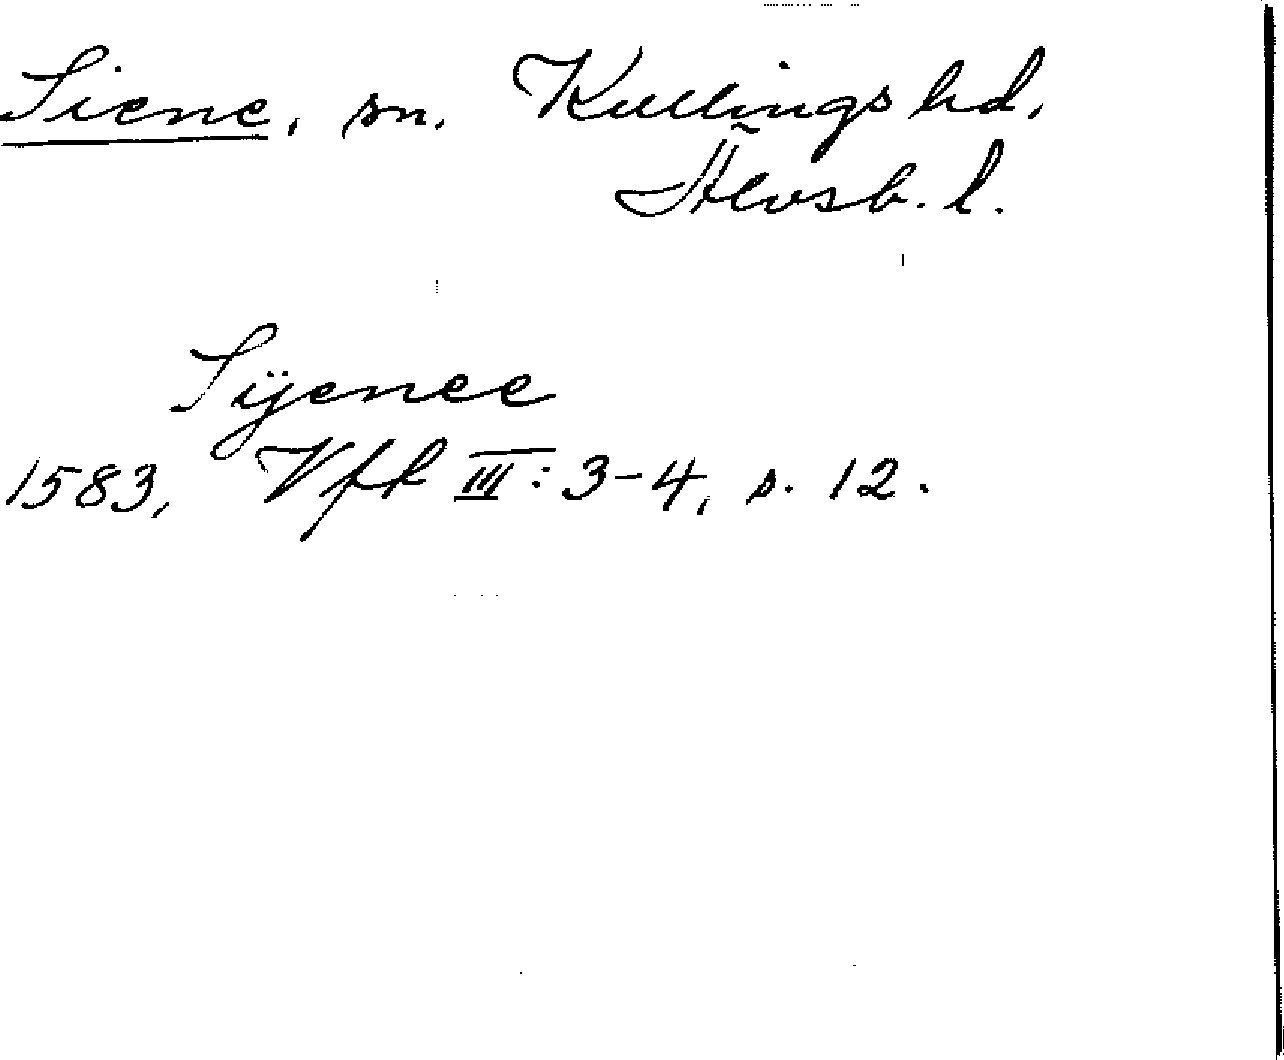 Siene, sn. Kullings hd.
Älvsb. l.
Sÿenee
1583, Vfk III: 3-4, s. 12.